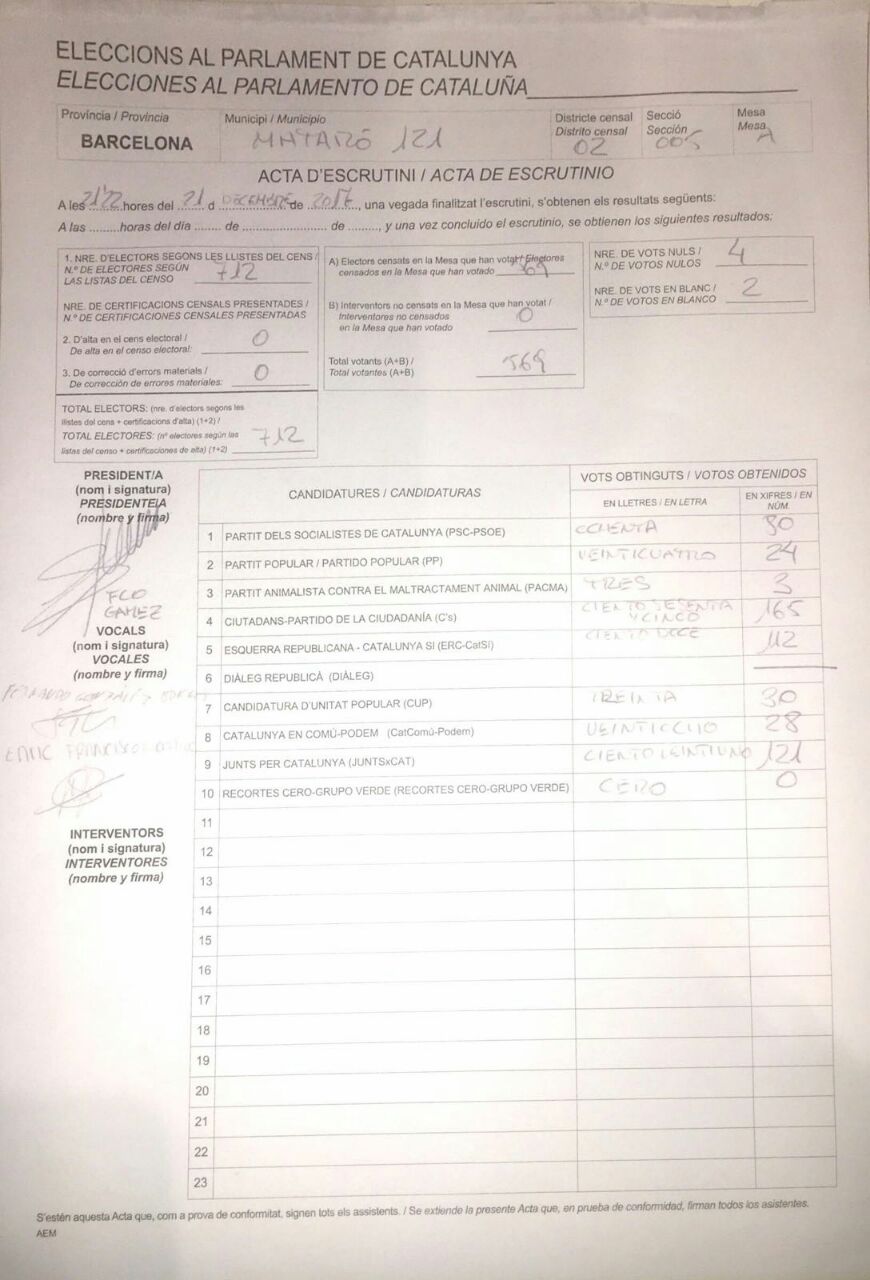 ELECCIONS AL PARLAMENT DE CATALUNYA
ELECCIONES AL PARLAMENTO DE CATALUÑA
Província / Provincia
BARCELONA
Municipi / Municipio
MATARÓ 121
Districte censal
Distrito censal
02
Secció
Sección
005
Mesa
Mesa
A
ACTA D'ESCRUTINI / ACTA DE ESCRUTINIO
A les 21'22 hores del 21 d DECEMBRE de 2017, una vegada finalitzat l'escrutini, s'obtenen els resultats següents:
A las .........horas del día ....... de ........................ de ........., y una vez concluido el escrutinio, se obtienen los siguientes resultados:
1. NRE. D'ELECTORS SEGONS LES LLISTES DEL CENS /
N.º DE ELECTORES SEGÚN
LAS LISTAS DEL CENSO 712
NRE. DE CERTIFICACIONS CENSALS PRESENTADES /
N.º DE CERTIFICACIONES CENSALES PRESENTADAS
2. D'alta en el cens electoral /
De alta en el censo electoral: 0
3. De correcció d'errors materials /
De corrección de errores materiales: 0
TOTAL ELECTORS: (nre. d'electors segons les
llistes del cens + certificacions d'alta) (1+2) /
TOTAL ELECTORES: (nº electores según las
listas del censo + certificaciones de alta) (1+2) 712
A) Electors censats en la Mesa que han votat / Electores
censados en la Mesa que han votado 569
B) Interventors no censats en la Mesa que han votat /
Interventores no censados
en la Mesa que han votado 0
Total votants (A+B) /
Total votantes (A+B) 569
NRE. DE VOTS NULS /
N.º DE VOTOS NULOS 4
NRE. DE VOTS EN BLANC /
N.º DE VOTOS EN BLANCO 2
PRESIDENT/A
(nom i signatura)
PRESIDENTE/A
(nombre y firma)
FCO
GAMEZ
VOCALS
(nom i signatura)
VOCALES
(nombre y firma)
INTERVENTORS
(nom i signatura)
INTERVENTORES
(nombre y firma)
CANDIDATURES / CANDIDATURAS
VOTS OBTINGUTS / VOTOS OBTENIDOS
EN LLETRES / EN LETRA
EN XIFRES / EN NÚM.
1 PARTIT DELS SOCIALISTES DE CATALUNYA (PSC-PSOE) OCHENTA 80
2 PARTIT POPULAR / PARTIDO POPULAR (PP) VEINTICUATRO 24
3 PARTIT ANIMALISTA CONTRA EL MALTRACTAMENT ANIMAL (PACMA) TRES 3
4 CIUTADANS-PARTIDO DE LA CIUDADANÍA (C's) CIENTO SESENTA Y CINCO 165
5 ESQUERRA REPUBLICANA - CATALUNYA SÍ (ERC-CatSí) CIENTO DOCE 112
6 DIÀLEG REPUBLICÀ (DIÀLEG)
7 CANDIDATURA D'UNITAT POPULAR (CUP) TREINTA 30
8 CATALUNYA EN COMÚ-PODEM (CatComú-Podem) VEINTIOCHO 28
9 JUNTS PER CATALUNYA (JUNTSxCAT) CIENTO VEINTIUNO 121
10 RECORTES CERO-GRUPO VERDE (RECORTES CERO-GRUPO VERDE) CERO 0
11
12
13
14
15
16
17
18
19
20
21
22
23
S'estén aquesta Acta que, com a prova de conformitat, signen tots els assistents. / Se extiende la presente Acta que, en prueba de conformidad, firman todos los asistentes.
AEM